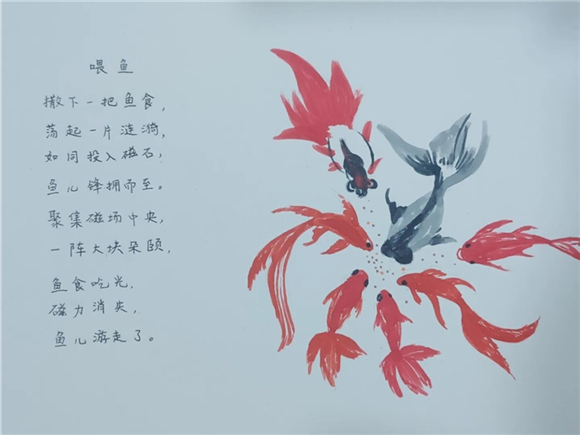 喂鱼
撒下一把鱼食，
荡起一片涟漪，
如同投入磁石，
鱼儿锋拥而至。
聚集磁场中央，
一阵大块朵颐，
鱼食吃光，
磁力消失，
鱼儿游走了。